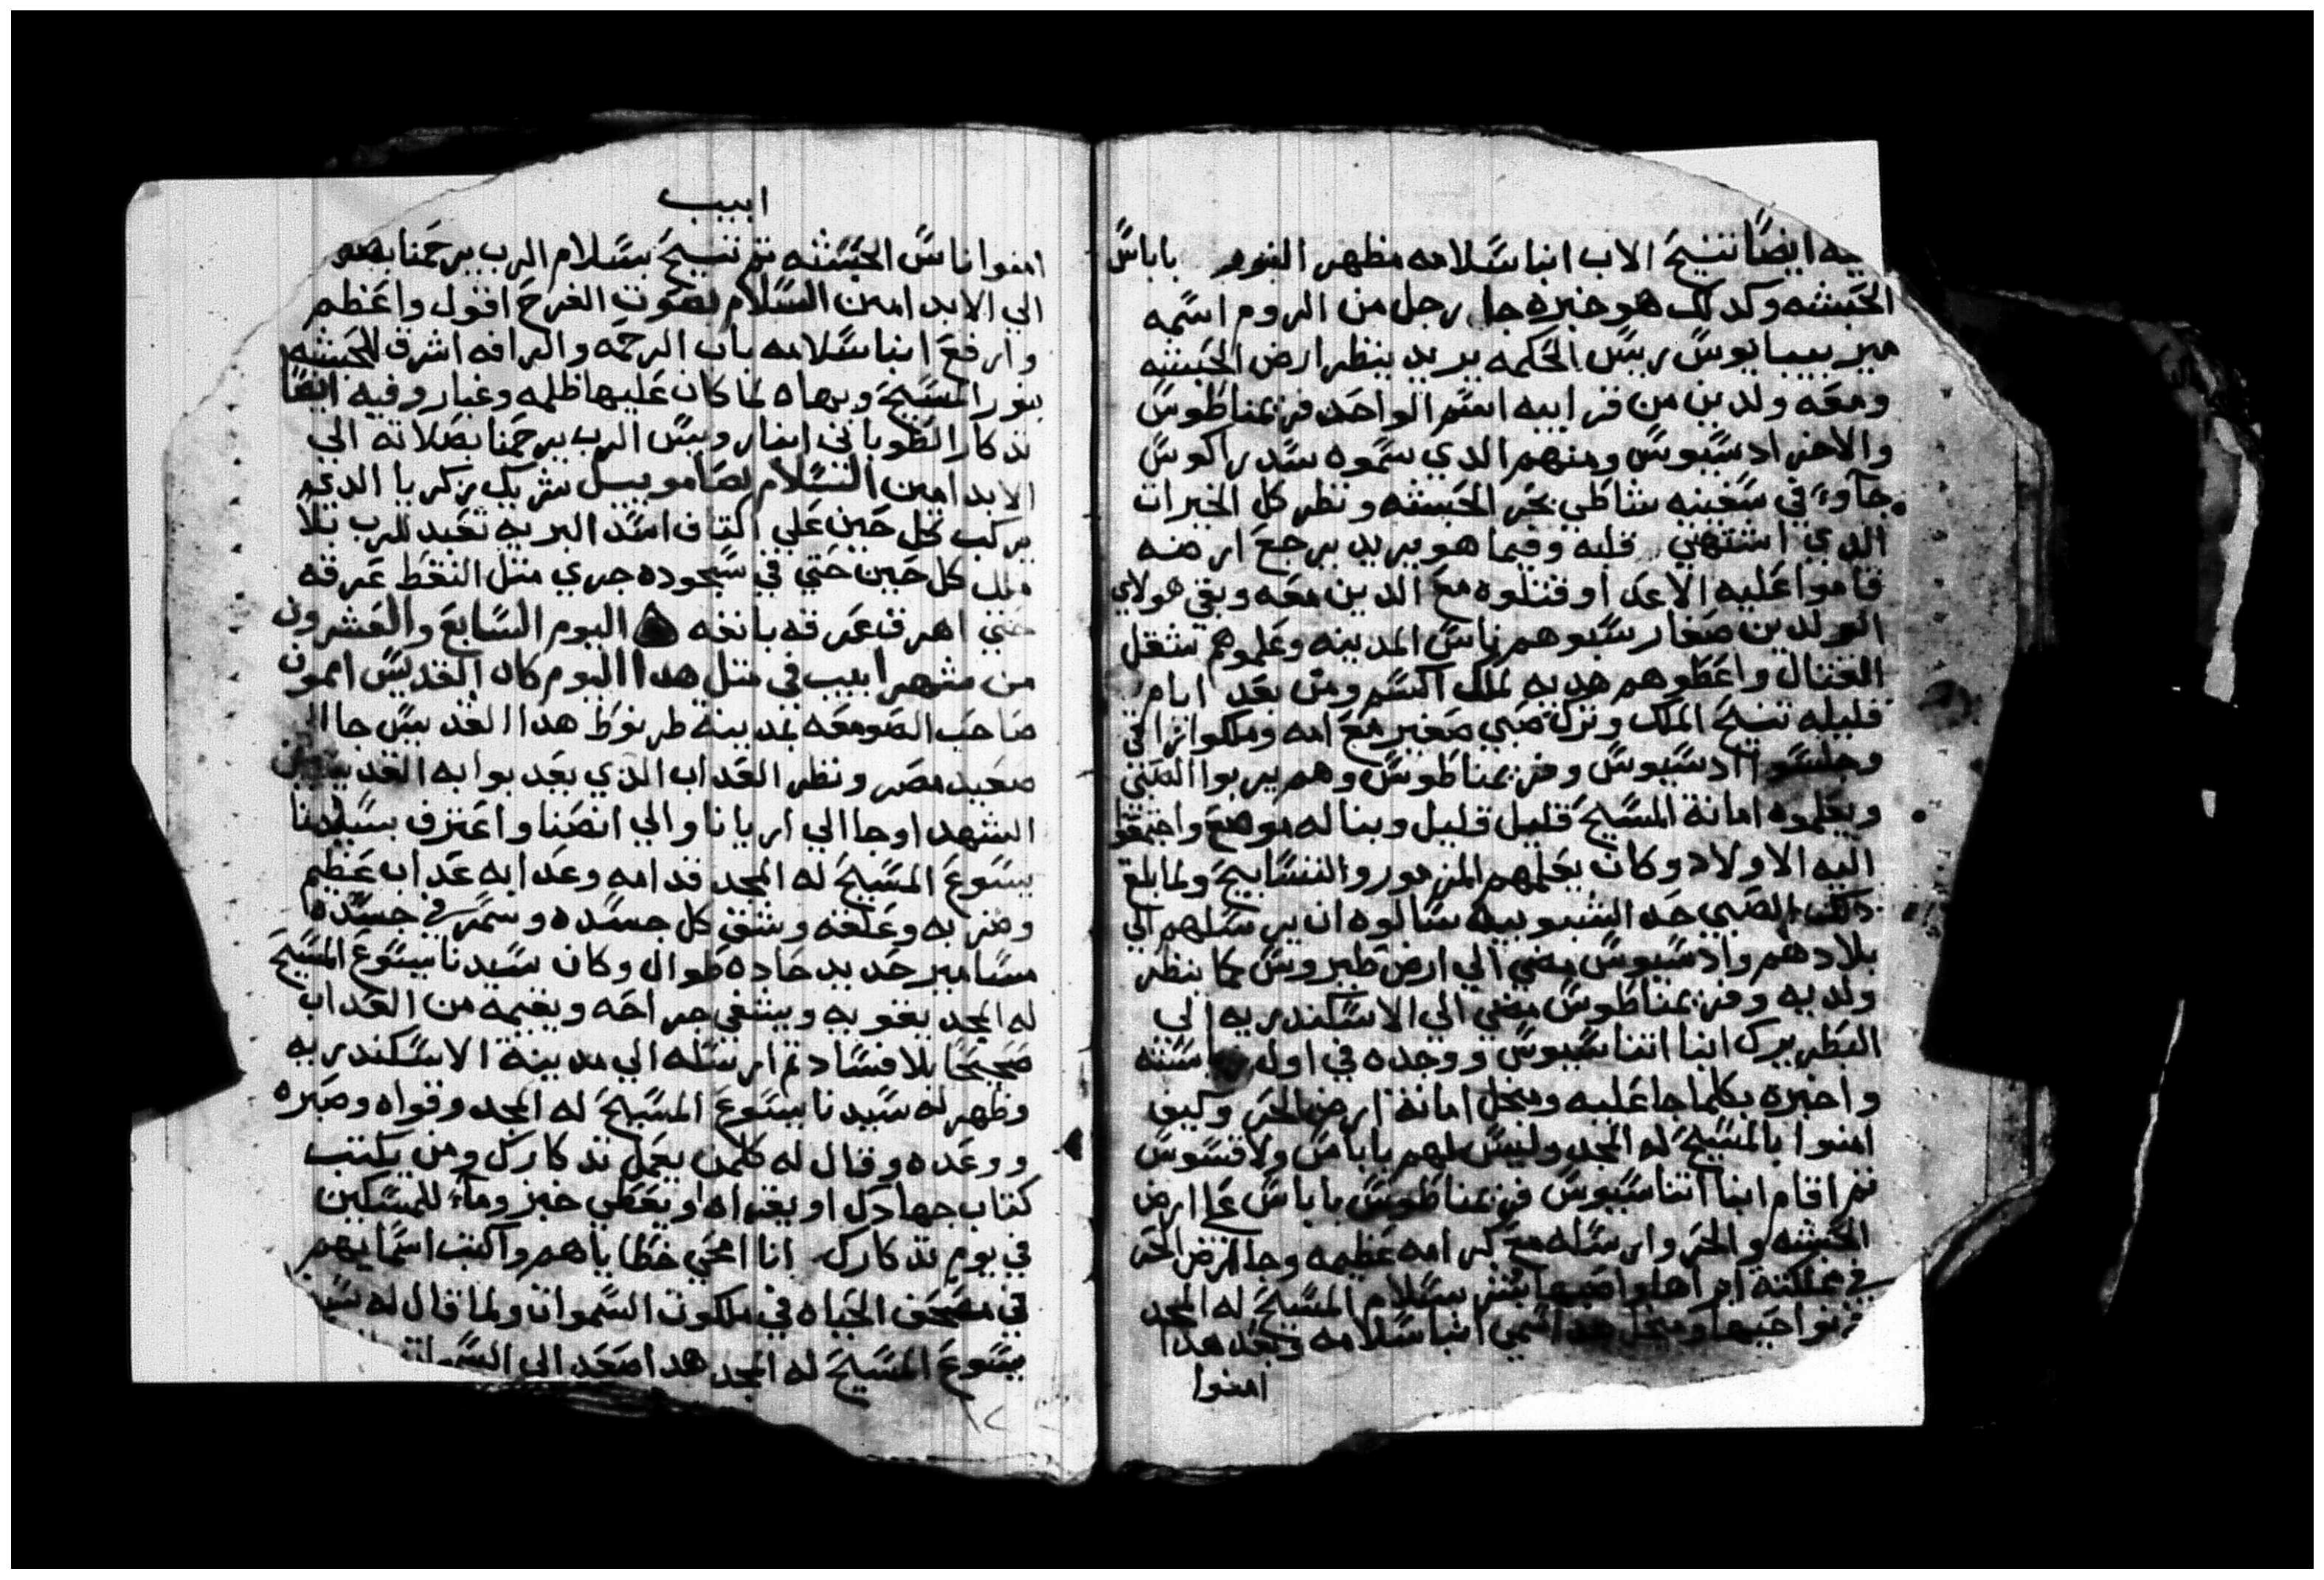 فيه ايضًا تنيح الاب انبا سلامه مظهر النور باباس
الحبشه وكدلك هو خبره جا رجل من الروم اسمه
ميربيبايوس ريس الحكمه يريد ينظر ارض الحبشه
ومعه ولدين من قرايبه اسم الواحد فرنمناطوس
والاخر ادسيوس ومنهم الدي سموه سدراكوس
جآوء في سفينه شاطي بحر الحبشه ونظر كل الخيرات
الدي اشتهي قلبه وفيما هو يريد يرجع ارضه
قاموا عليه الاعدا وقتلوه مع الدين معه وبقي هولاي
الولدين صغار سبوهم ناس المدينه وعلموهم شغل
القتال واعطوهم هديه لملك اكسم ومن بعد ايام
قليله تنيح الملك وترك صبي صغير مع امه وملكوا
وجلسوا ادسيوس وفرنمناطوس وهم يربوا الصبي
ويعلموه امانة المسيح قليل قليل وبنا له موضع واجتمعوا
اليه الاولاد وكان يعلمهم المزمور والتسابيح ولما بلغ
دلك الصبي حد الشبوبيه سالوه ان يرسلهم الي
بلادهم وادسيوس مضي الي ارض طيروس كما ينظر
ولديه وفرنمناطوس مضي الي الاسكندريه الي
البطريرك انبا اتناسيوس ووجده في اول سنته
واخبره بكلما جا عليه ومنجل امانة ارض الحر وكيف
امنوا بالمسيح له المجد وليس لهم باباس ولا قسوس
تم اقام انبا اتناسيوس فرنمناطوس باباس علي ارض
الحبشه والحر وارسله مع كرامه عظيمه وجا ارض الحر
في مملكته ابراها واصبها بشر بسلام المسيح له المجد
نواحيها ومنجل هدا سمي انبا سلامه وبعد هدا
امنوا
ابيب
امنوا ناس الحبشه تم تنيح بسلام الرب يرحمنا بصلاته
الي الابد امين السلام بصوت الفرح اقول واعظم
وارفع انبا سلامه باب الرحمه والرافه اشرق للحبشه
بنور المسيح وبهاه لما كان عليها ظلمه وغبار وفيه ايضًا
تدكار الطوباني انبا رويس الرب يرحمنا بصلاته الي
الابد امين السلام لصامويبل شريك زكريا الدي
يركب كل حين علي اكتاف اسد البريه تعبد للرب بلا
ملل كل حين حتي في سجوده جري متل النقط عرقه
حتي اهرق عرقه بانفه اليوم السابع والعشرون
من شهر ابيب في متل هدا اليوم كان القديس امون
صاحب الصومعه بمدينة طرنوط هدا القديس جا الي
صعيد مصر ونظر العداب الدي يعدبوا به القديسين
الشهدا وجا الي اريانا والي انصنا واعترف بسيدنا
يسوع المسيح له المجد قدامه وعدابه عداب عظيم
وضربه وعلقه وشق كل جسده وسمر في جسده
مسامير حديد حاده طوال وكان سيدنا يسوع المسيح
له المجد يقويه ويشفي جراحه ويقيمه من العداب
صحيحا بلا فساد تم ارسله الي مدينة الاسكندريه
وظهر له سيدنا يسوع المسيح له المجد وقواه وصبره
ووعده وقال له كلمن يعمل تدكارك ومن يكتب
كتاب جهادك او يقراه او يعطي خبز ومآء للمسكين
في يوم تدكارك انا امحي خطاياهم واكتب اسمايهم
في مصحف الحياه في ملكوت السموات ولما قال له
يسوع المسيح له المجد هدا صعد الي